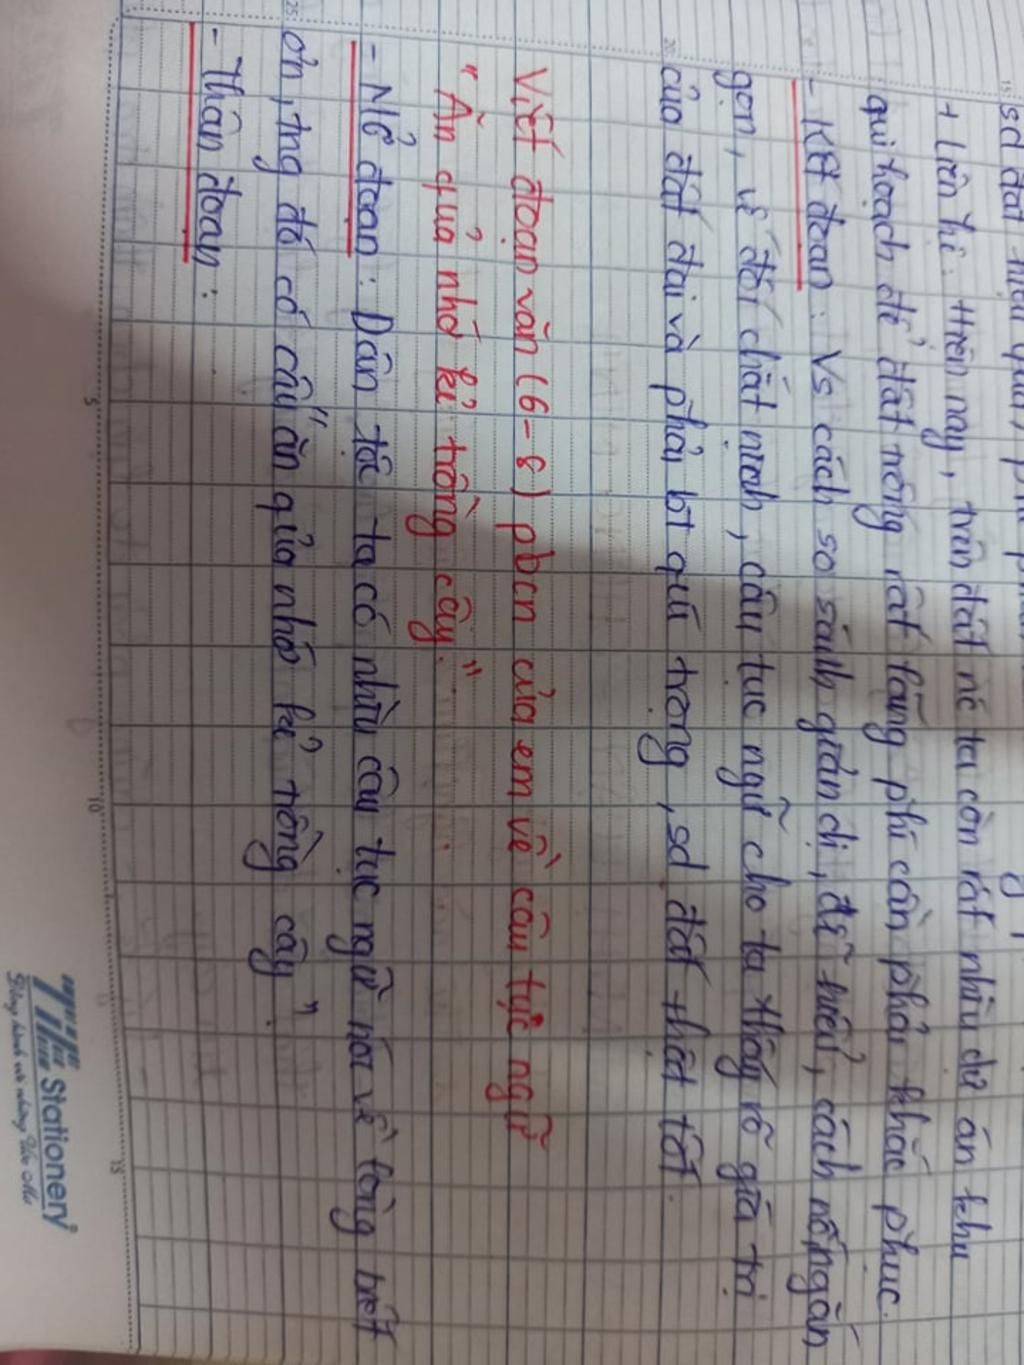 sd đất hiệu quả,
+ Liên hệ: Hiện nay, trên đất nc ta còn rất nhiều dự án khu
qui hoạch để đất trống rất lãng phí cần phải khắc phục.
- Kết đoạn: Vs cách so sánh giản dị, dễ hiểu, cách nói ngắn
gọn, vế đối chặt nịch, câu tục ngữ cho ta thấy rõ giá trị
của đất đai và phải bt quí trọng, sd đất thật tốt.
Viết đoạn văn (6-8) pbcn của em về câu tục ngữ
"Ăn quả nhớ kẻ trồng cây."
- Mở đoạn: Dân tộc ta có nhiều câu tục ngữ nói về lòng biết
ơn, tng đó có câu "ăn quả nhớ kẻ trồng cây".
- Thân đoạn:
Stationery
15
20
25
5
10
15